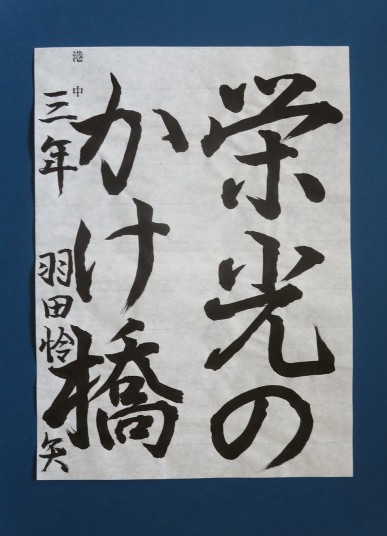 栄光の
かけ橋
港中
三年 羽田怜矢